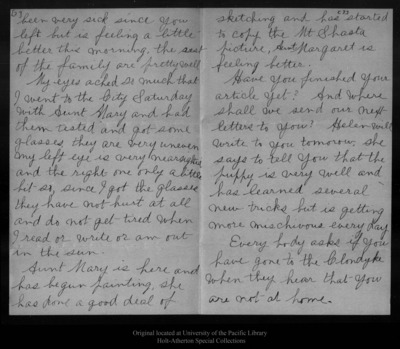 5)
been very sick since you
left but is feeling a little
better this morning. the rest
of the family are pretty well
My eyes ached so much that
I went to the City Saturday
with Aunt Mary and had
them tested and got some
glasses they are very uneven
my left eye is very nearsighted
and the right one only a little
bit so, since I got the glasses
they have not hurt at all
and do not get tired when
I read or write or am out
in the sun.
Aunt Mary is here and
has begun painting, she
has done a good deal of
sketching and has started
to copy the Mt Shasta
picture, Aunt Margaret is
feeling better.
Have you finished your
article yet? And where
shall we send our next
letters to you? Helen will
write to you tomorow, she
says to tell you that the
puppy is very well and
has learned several
new tricks but is getting
more mischivous every day
Every body asks if you
have gone to the Clondyke
when they hear that you
are not at home.
Original located at University of the Pacific Library
Holt-Atherton Special Collections